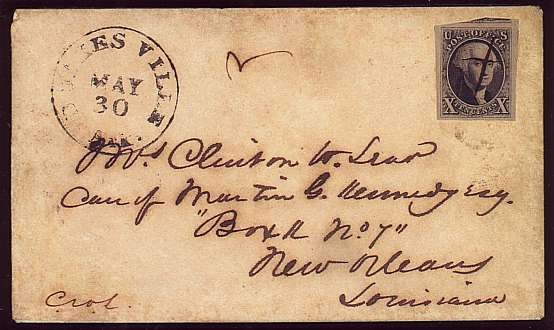 VILLE
MAY
30
POST OFFICE
X TEN CENTS X
Mrs Clinton W. Lear
Care of Martin G. Kennedy Esq.
No 7"
New Orleans
Louisiana